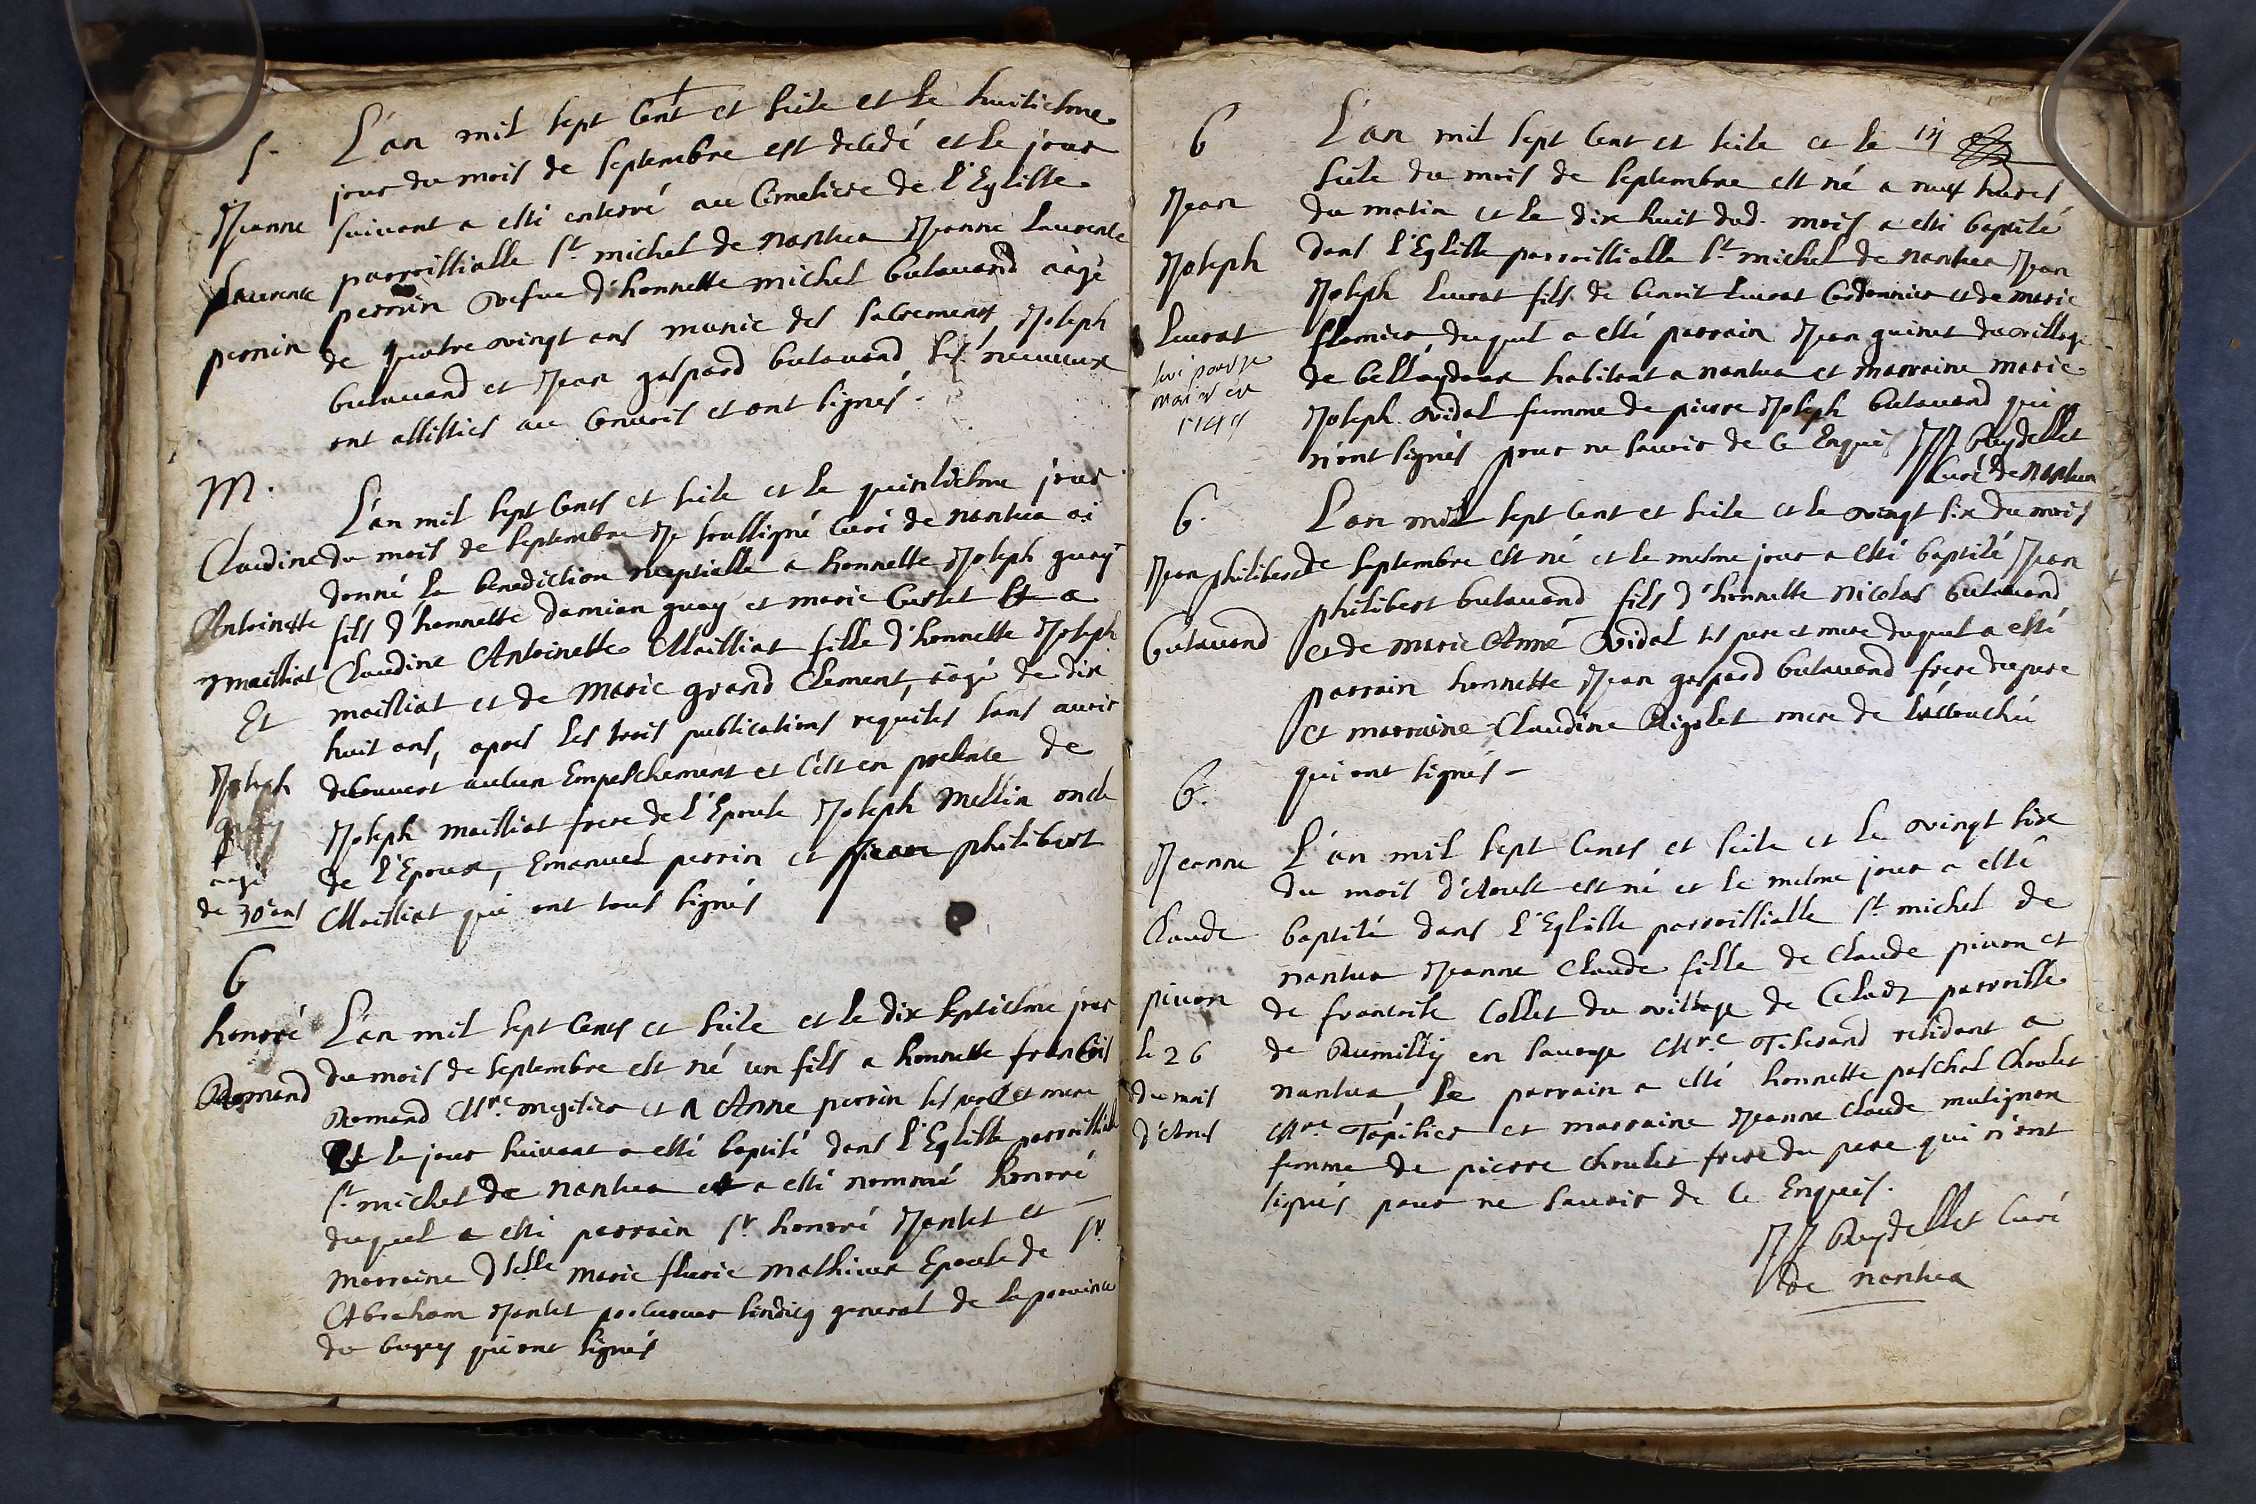 S.
Jeanne
Laurence
perrin
L'an mil sept Cent et seize et le huitiesme
jour du mois de septembre est decedé et le jour
suivant a esté enterré au Cimetiere de l'Eglisse
parroissialle St. michel de nantua Jeanne Laurence
perrin vefue d'honnette michel butauand aâgé
de quatre vingt ans munie des sacrements, Joseph
butauand et Jean gaspard butauand ses neuueux
ont assistés au Conuois et ont signés.
M.
Claudine
Antoinette
maissiat
Et
Joseph
guay
aagé
de 30 ans
L'an mil sept Cents et seize et le quinziesme jour
du mois de septembre Je soussigné Curé de nantua ai
donné la benediction nuptialle a honnette Joseph guay
fils d'honnette damian guay et marie Curtet Et a
Claudine Antoinette Maissiat fille d'honnette Joseph
maissiat et de Marie grand Clement, aâgé de dix
huit ans, apres les trois publications requises sans auoir
decouuert aucun Empeschement et C'est en presence de
Joseph maissiat frere de l'Epouse Joseph Mellin oncle
de l'Epoux, Emanuel perrin et Jean philibert
Maissiat qui ont tous signés
B
honoré
Romand
L'an mil sept Cents et seize et le dix septiesme jour
du mois de septembre est né un fils a honnette francois
Romand Mre. megissier et a Anne perrin ses pere et mere
Et le jour suivant a esté baptisé dans l'Eglisse parroissialle
St. michel de nantua et a esté nommé honoré
duquel a esté parrain Sr. honoré Jantet et
marraine dlle. marie fleurie mathieux Epouse de Sr.
Abraham Jantet procureur sindicq general de la province
du bugey qui ont signés
B
Jean
Joseph
Leurat
L'an mil sept Cent et seize et le
seize du mois de septembre est né a neuf heures
du matin et le dix huit dud. mois a esté baptisé
dans l'Eglisse parroissialle St. michel de nantua Jean
Joseph Leurat fils de benoit Leurat Cordonnier et de marie
flamier, duquel a esté parrain Jean guinet du village
de bellaydoux habitant a nantua et marraine marie
Joseph vidal femme de pierre Joseph butauand qui
n'ont signés pour ne sauoir de ce Enquis JJ Buydellet
Curé de Nantua
B.
Jean philibert
butauand
L'an mil sept Cent et seize et le vingt six du mois
de septembre est né et le mesme jour a esté baptisé Jean
philibert butauand fils d'honnette nicolas butauand
et de marie Anne vidal ses pere et mere duquel a esté
parrain honnette Jean gaspard butauand frere du pere
et marraine Claudine Rigolet mere de l'accouchée
qui ont signés
B.
Jeanne
Claude
piuon
le 26
du mois
d'Aous
L'an mil sept Cents et seize et le vingt six
du mois d'Aoust est né et le mesme jour a esté
baptisé dans l'Eglisse parroissialle St. michel de
nantua Jeanne Claude fille de Claude piuon et
de francoise Collet du village de parroisse
de Rumilly en Sauoye Mre. Tisserand residant a
nantua, le parrain a esté honnette paschal Choulet
Mre. Tapissier et marraine Jeanne Claude mulignon
femme de pierre Choulet frere du pere qui n'ont
signés pour ne sauoir de ce Enquis.
JJ Buydellet Curé
de nantua